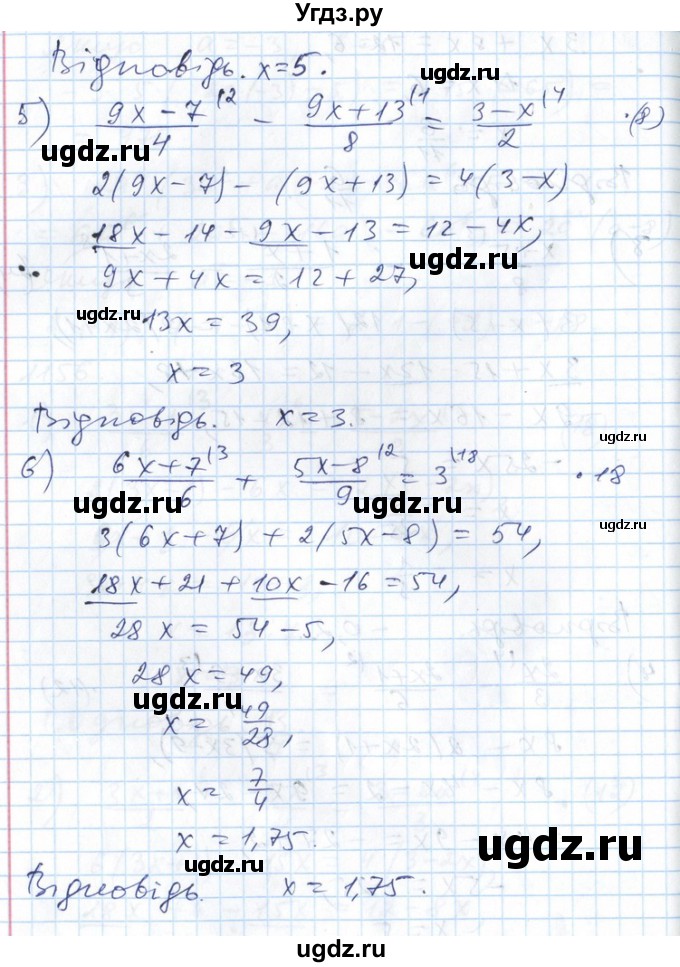 Угдз.ру
Відповідь. x=5.
5) (9x-7)/4 |2 - (9x+13)/8 |1 = (3-x)/2 |4 ·(8)
2(9x-7) - (9x+13) = 4(3-x)
18x - 14 - 9x - 13 = 12 - 4x,
9x + 4x = 12 + 27,
13x = 39,
x = 3
Відповідь. x = 3.
6) (6x+7)/6 |3 + (5x-8)/9 |2 = 3 |18 ·18
3(6x+7) + 2(5x-8) = 54,
18x + 21 + 10x - 16 = 54,
28x = 54 - 5,
28x = 49,
x = 49/28,
x = 7/4
x = 1,75.
Відповідь. x = 1,75.
ugdz.ru
ugdz.ru
ugdz.ru
ugdz.ru
ugdz.ru
ugdz.ru
ugdz.ru
ugdz.ru
ugdz.ru
ugdz.ru
ugdz.ru
ugdz.ru
ugdz.ru
ugdz.ru